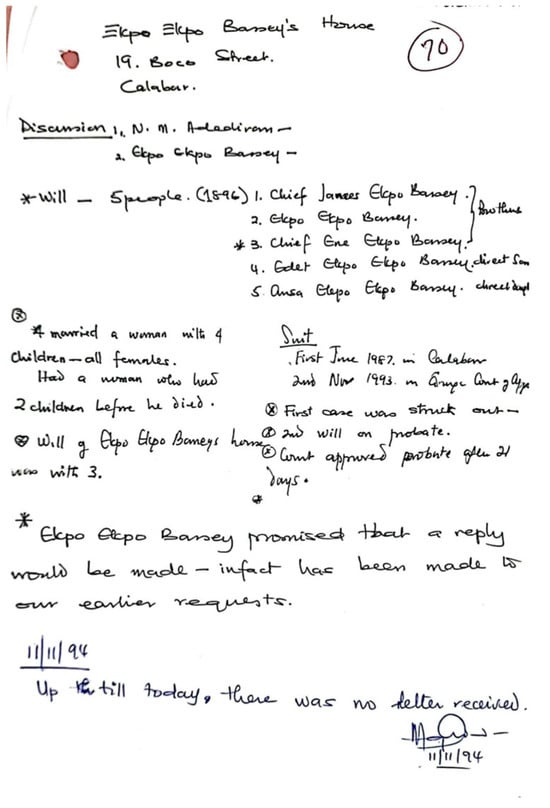 Ekpo Ekpo Bassey's House
70
19. Boco Street.
Calabar.
Discussion 1, N. M.
2. Ekpo Ekpo Bassey –
* Will – 5 people. (1896) 1. Chief James Ekpo Bassey.
2. Ekpo Ekpo Bassey.
Brothers
* 3. Chief Ene Ekpo Bassey.
4. Edet Ekpo Ekpo Bassey. direct Son
5. Ansa Ekpo Ekpo Bassey. direct
4 married a woman with 4
children – all females.
Had a woman who had
2 children before he died.
Will of Ekpo Ekpo Basseys home
was with 3.
Suit
First June 1987. in Calabar
2nd Nov 1993. in Court of
First case was struck out –
2nd will on probate.
Court approved probate after 21
days.
*
* Ekpo Ekpo Bassey promised that a reply
would be made – infact has been made to
our earlier requests.
11/11/94
Up till today, there was no letter received.
11/11/94